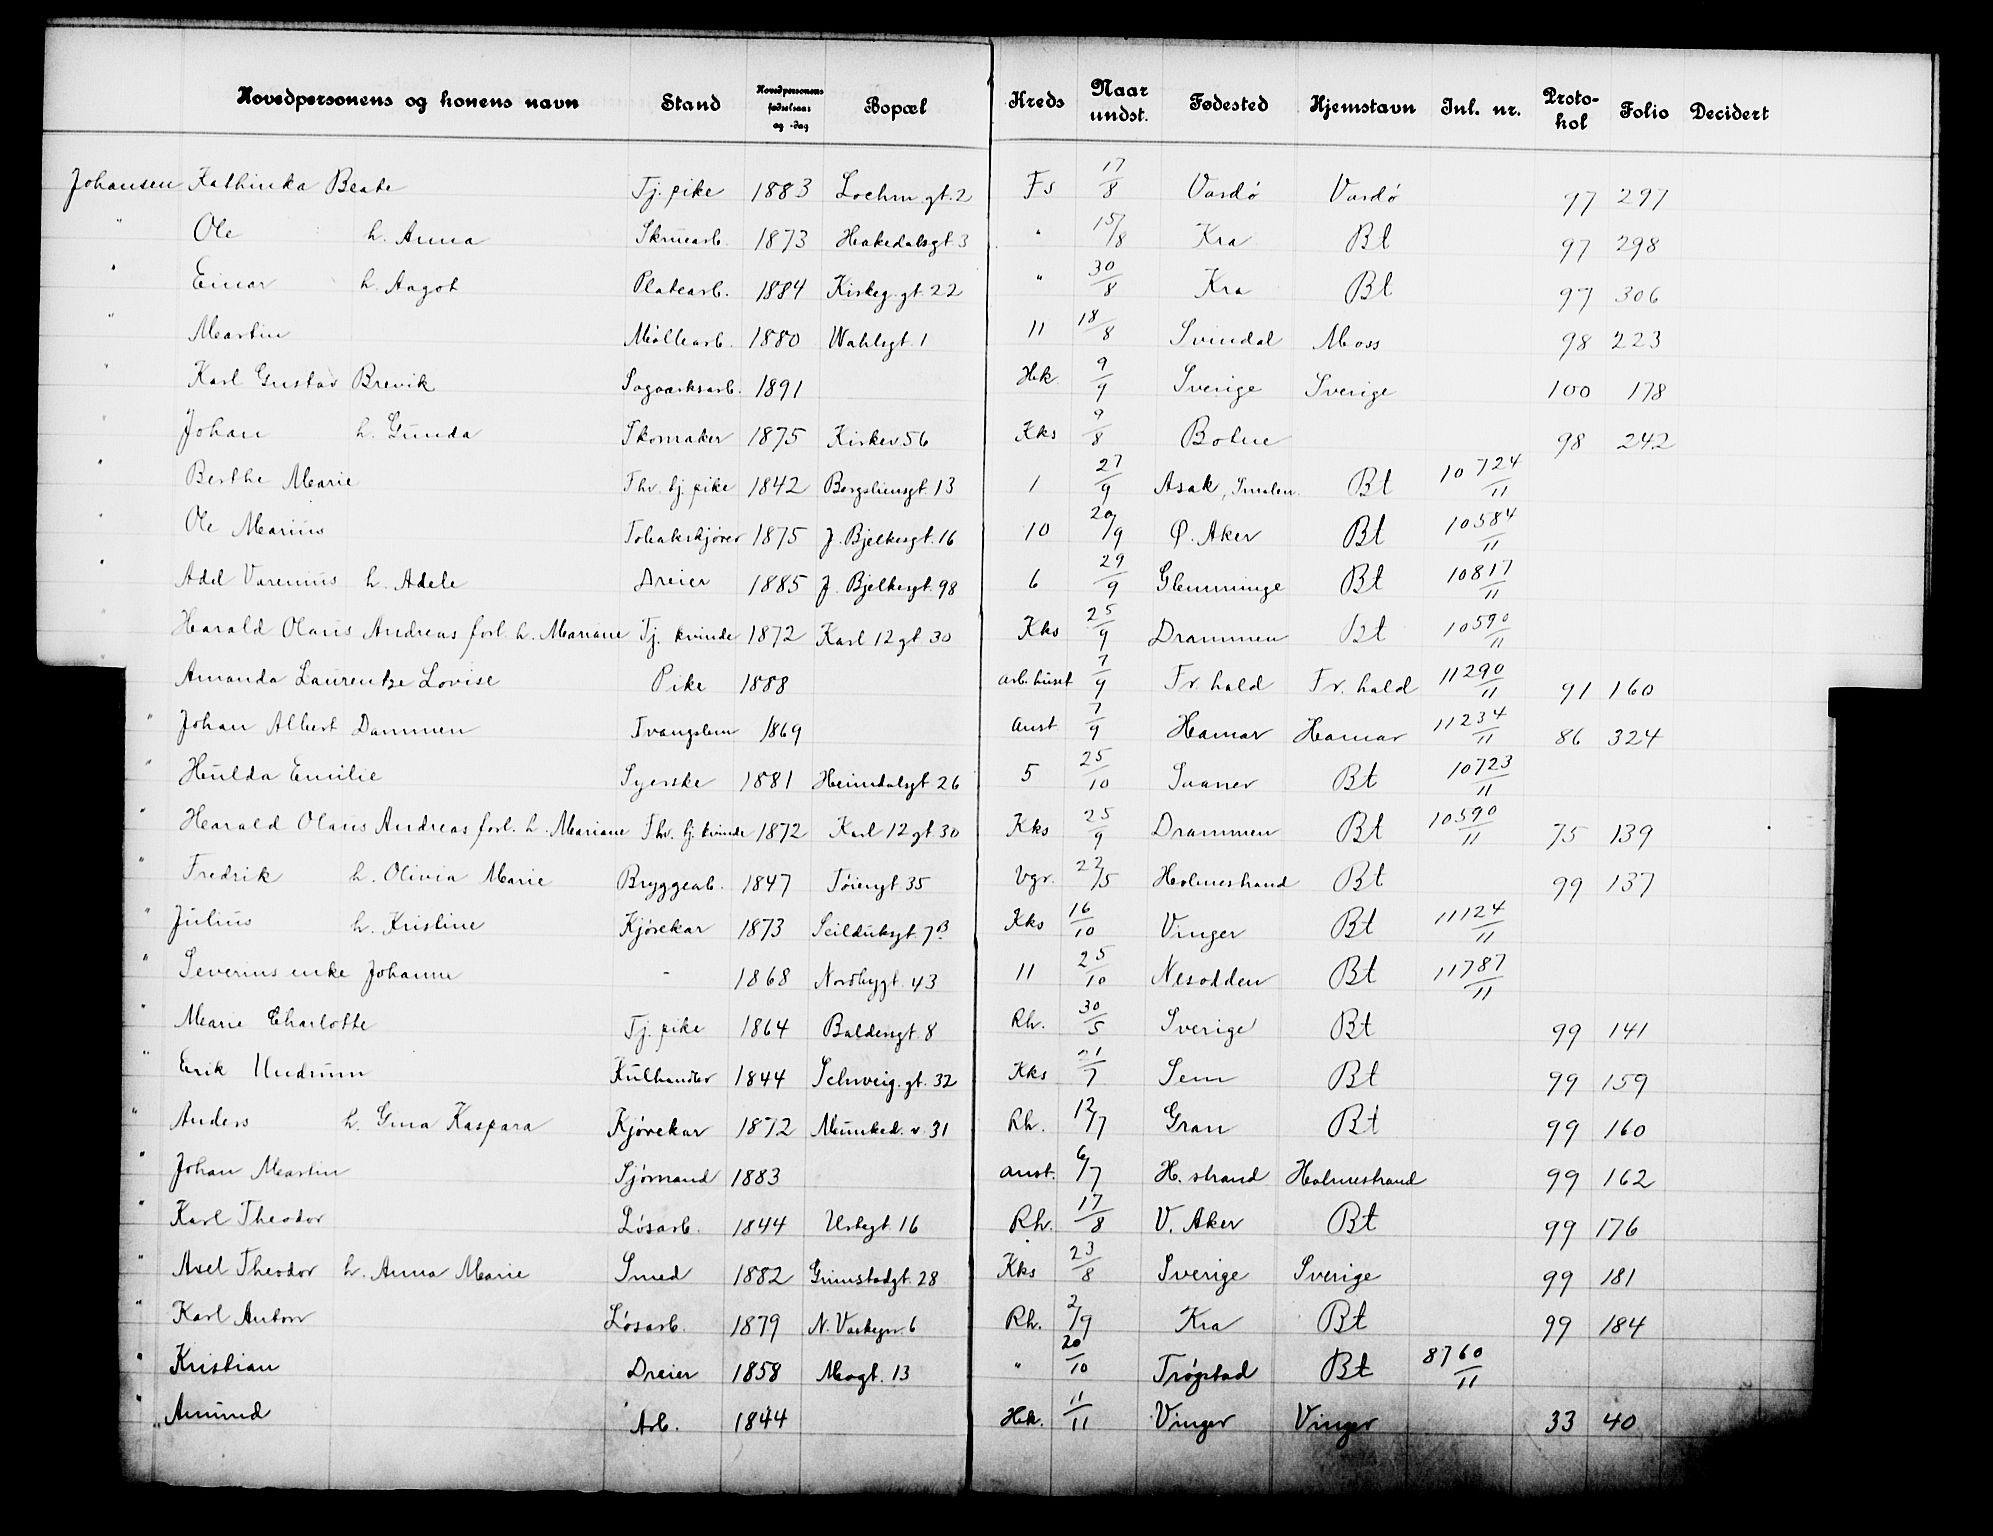 Hovedpersonens og konens navn Stand Hovedpersonens fødselsaar og -dag Bopæl Kreds Naar undst. Fødested Hjemstavn Inl. nr. Protokol Folio Decidert
Johansen Kathinka Beate Tj. pike 1883 Lochm. gt. 2 Fs 17/8 Vardø Vardø 97 297
" Ole h. Anna Skruearb. 1873 Hakedalsgt 3 " 15/8 Kra Bt 97 298
" Einar h. Aagot Platearb. 1884 Kirkeg. gt. 22 " 30/8 Kra Bt 97 306
" Martin Møllearb. 1880 Wahlsgt. 1 11 18/8 Svindal Moss 98 223
" Karl Gustav Brevik Sagverksarb. 1891 Hk. 9/9 Sverige Sverige 100 178
" Johan h. Gunda Skomaker 1875 Kirkev 56 Kks 9/8 Botne 98 242
" Berthe Marie Fhv. tj. pike 1842 Bergsliensgt. 13 1 27/9 Asak, Smalen. Bt 10724/11
" Ole Marius Tobakskjører 1875 J. Bjelkesgt. 16 10 20/9 Ø. Aker Bt 10584/11
" Adel Varenius h. Adele Dreier 1885 J. Bjelkesgt. 98 6 29/9 Glemminge Bt 10817/11
" Harald Olaus Andreas forl. h. Mariane Tj. kvinde 1872 Karl 12 gt 30 Kks 25/9 Drammen Bt 10590/11
Amanda Laurentze Lovise Pike 1888 arb. huset 7/9 Fr. hald Fr. hald 11290/11 91 160
" Johan Albert Dammen Tvangslem 1869 Anst 7/9 Hamar Hamar 11234/11 86 324
" Hulda Emilie Syerske 1881 Heimdalsgt 26 5 25/10 Svaner Bt 10723/11
" Harald Olaus Andreas forl. h. Mariane Fhv. tj. kvinde 1872 Karl 12 gt 30 Kks 25/9 Drammen Bt 10590/11 75 139
" Fredrik h. Olivia Marie Bryggearb. 1847 Tøiengt 35 Vgr. 22/5 Holmestrand Bt 99 137
" Julius h. Kristine Kjørekar 1873 Seilduksgt. 7B Kks 16/10 Vinger Bt 11124/11
" Severins enke Johanne - 1868 Nordbygt. 43 11 25/10 Nesodden Bt 11787/11
" Marie Charlotte Tj. pike 1864 Baldersgt 8 Rh. 30/5 Sverige Bt 99 141
" Erik Undrum Kulhandler 1844 Schweig. gt. 32 Kks 21/7 Sem Bt 99 159
" Anders h. Gina Kaspara Kjørekar 1872 Munked. v. 31 Rh. 12/7 Gran Bt 99 160
" Johan Martin Sjømand 1883 Anst. 6/7 H. strand Holmestrand 99 162
" Karl Theodor Løsarb. 1844 Urtegt 16 Rh. 17/8 V. Aker Bt 99 176
" Axel Theodor h. Anna Marie Smed 1882 Grimstadgt. 28 Kks 23/8 Sverige Sverige 99 181
" Karl Anton Løsarb. 1879 N. Vaskegn. 6 Rh. 2/9 Kra Bt 99 184
" Kristian Dreier 1858 Mogt. 13 " 20/10 Trøgstad Bt 8760/11
" Amund Arb. 1844 Hk. 11/11 Vinger Vinger 33 40